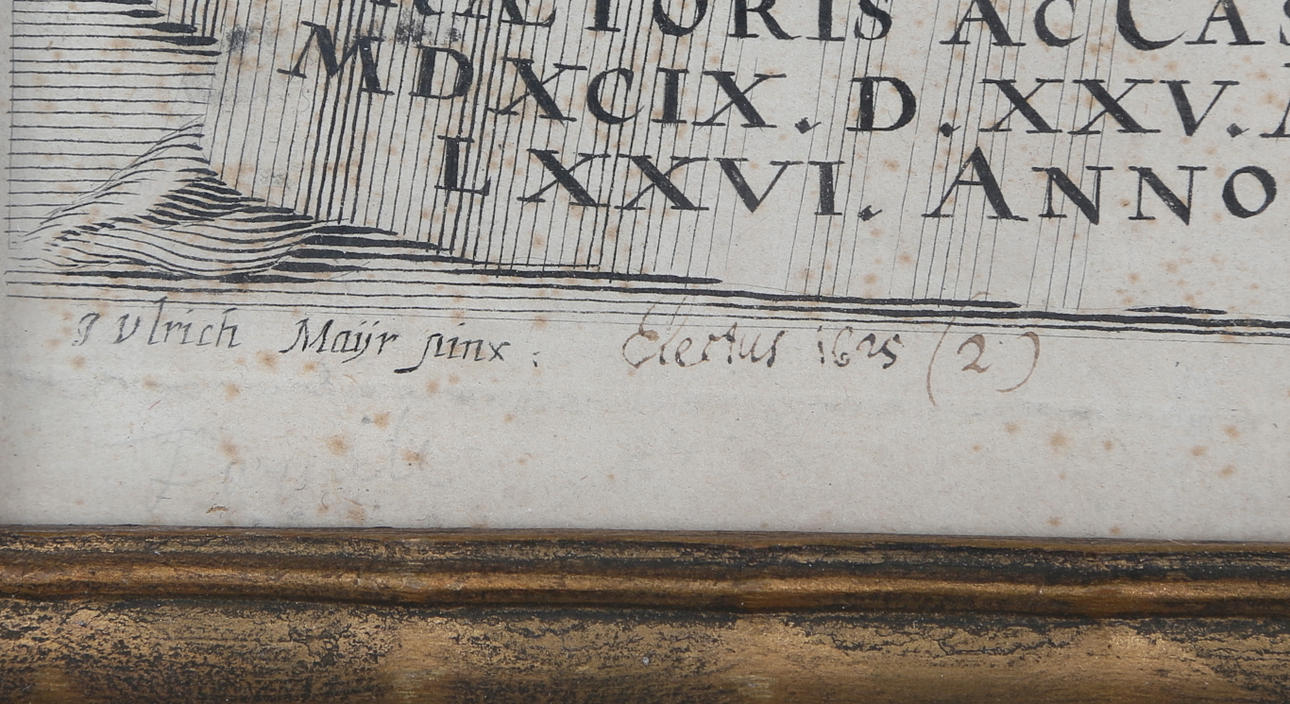 TORIS AC CAS
MDXCIX. D. XXV.
LXXVI. ANNO
J Ulrich Maÿr pinx. Electus 1625 (2)